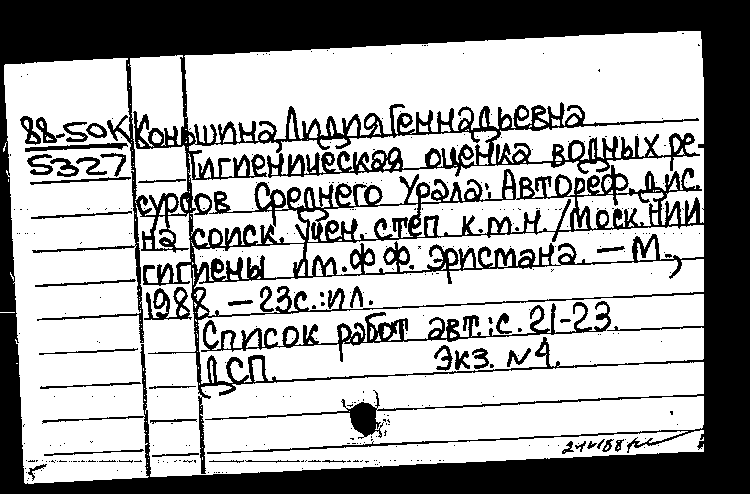 88-50К Коньшина, Лидия Геннадьевна
5327 Гигиеническая оценка водных ре-
сурсов Среднего Урала: Автореф. дис.
на соиск. учен. степ. к.м.н. /Моск. НИИ
гигиены им. Ф.Ф. Эрисмана. — М.,
1988. — 23с.: ил.
Список работ авт.: с. 21-23.
ДСП. Экз. №4.